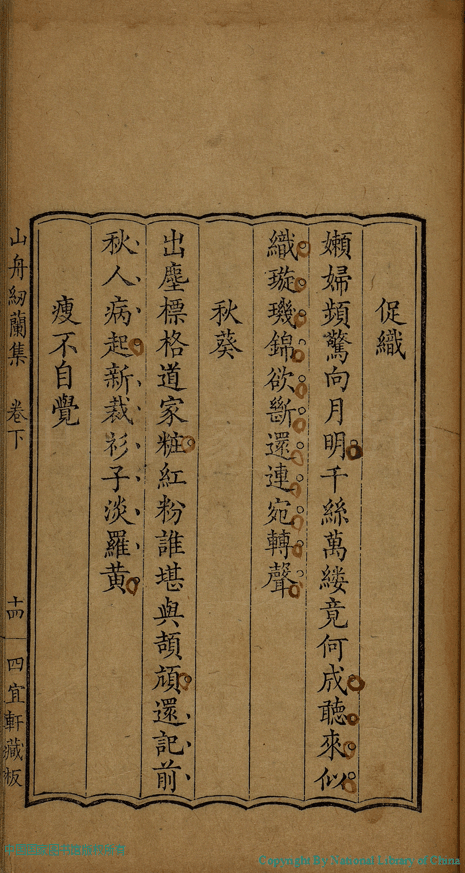 促織
嬾婦頻驚向月明千絲萬縷竟何成聽來似
織璇璣錦欲斷還連宛轉聲
秋葵
出塵標格道家粧紅粉誰堪與頡頏還記前
秋人病起新裁衫子淡羅黃
瘦不自覺
山舟紉蘭集 卷下 十四 四宜軒藏板
Copyright By National Library of China